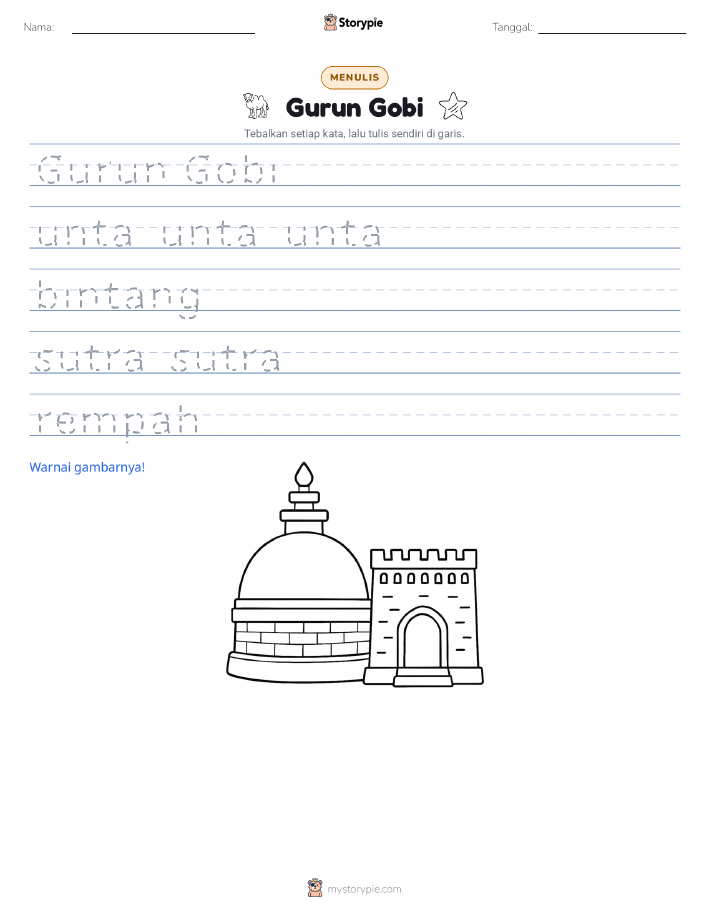 Nama:
Storypie
Tanggal:
MENULIS
Gurun Gobi
Tebalkan setiap kata, lalu tulis sendiri di garis.
Gurun Gobi
unta unta unta
bintang
sutra sutra
rempah
Warnai gambarnya!
mystorypie.com